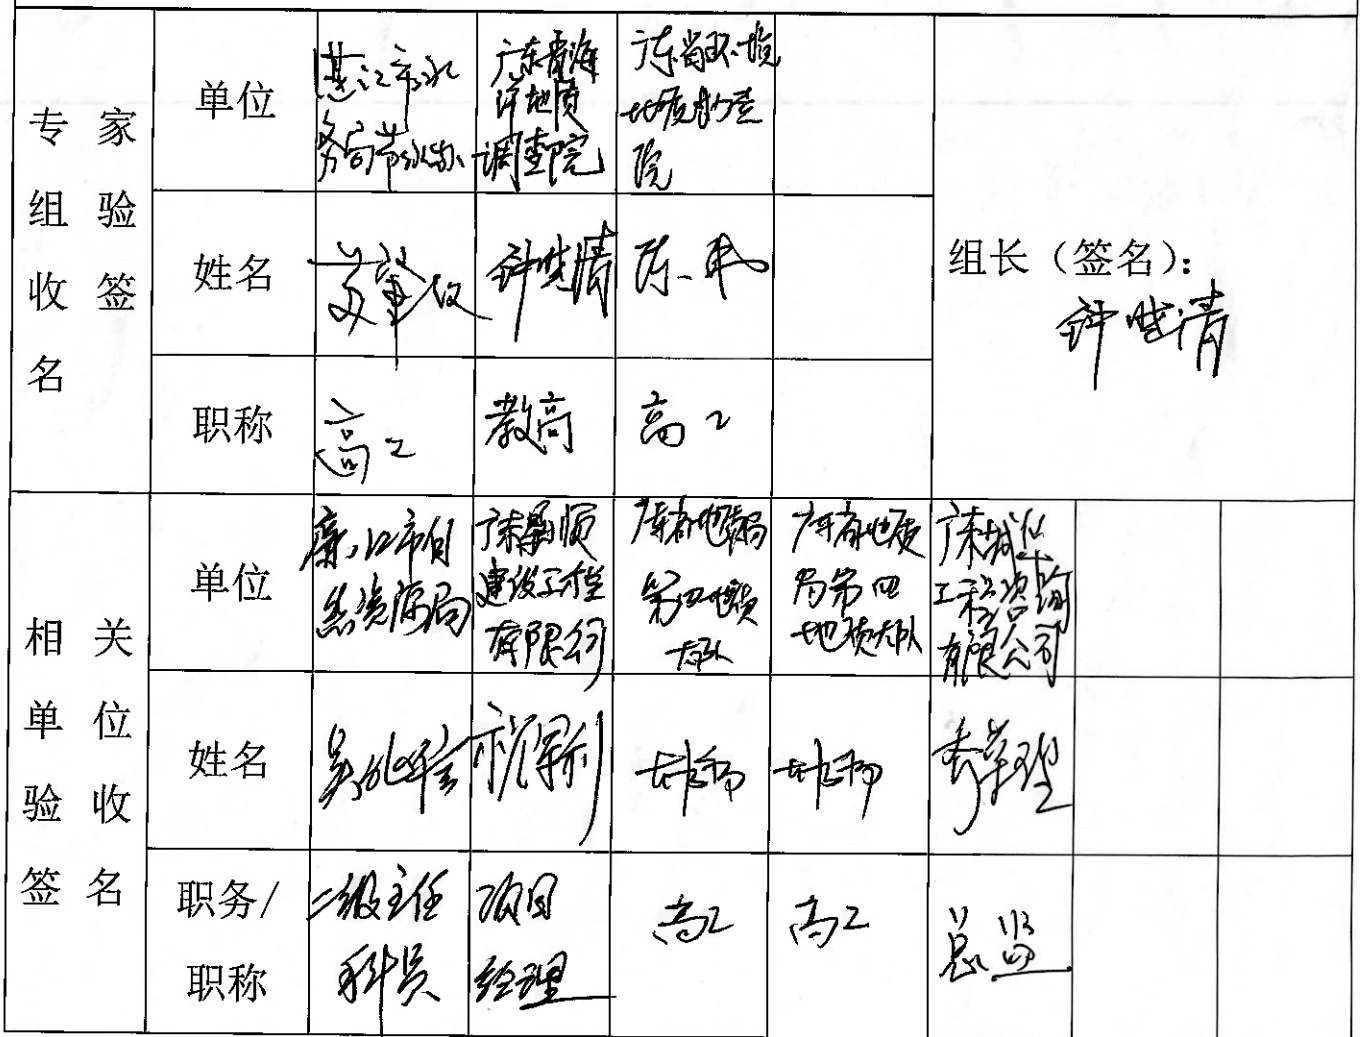 专家
组验
收签
名
单位
湛江市水
务局节水办
广东省海
洋地质
调查院
广东省环境
地质勘查
院
姓名
钟世清
陈一平
组长（签名）：
钟世清
职称
高工
教高
高工
相关
单位
验收
签名
单位
廉江市自
然资源局
建设工程
有限公司
广东省地质局
第四地质
大队
广东省地质
局第四
地质大队
广东城华
工程咨询
有限公司
姓名
职务/
职称
二级主任
科员
项目
经理
高工
高工
总监